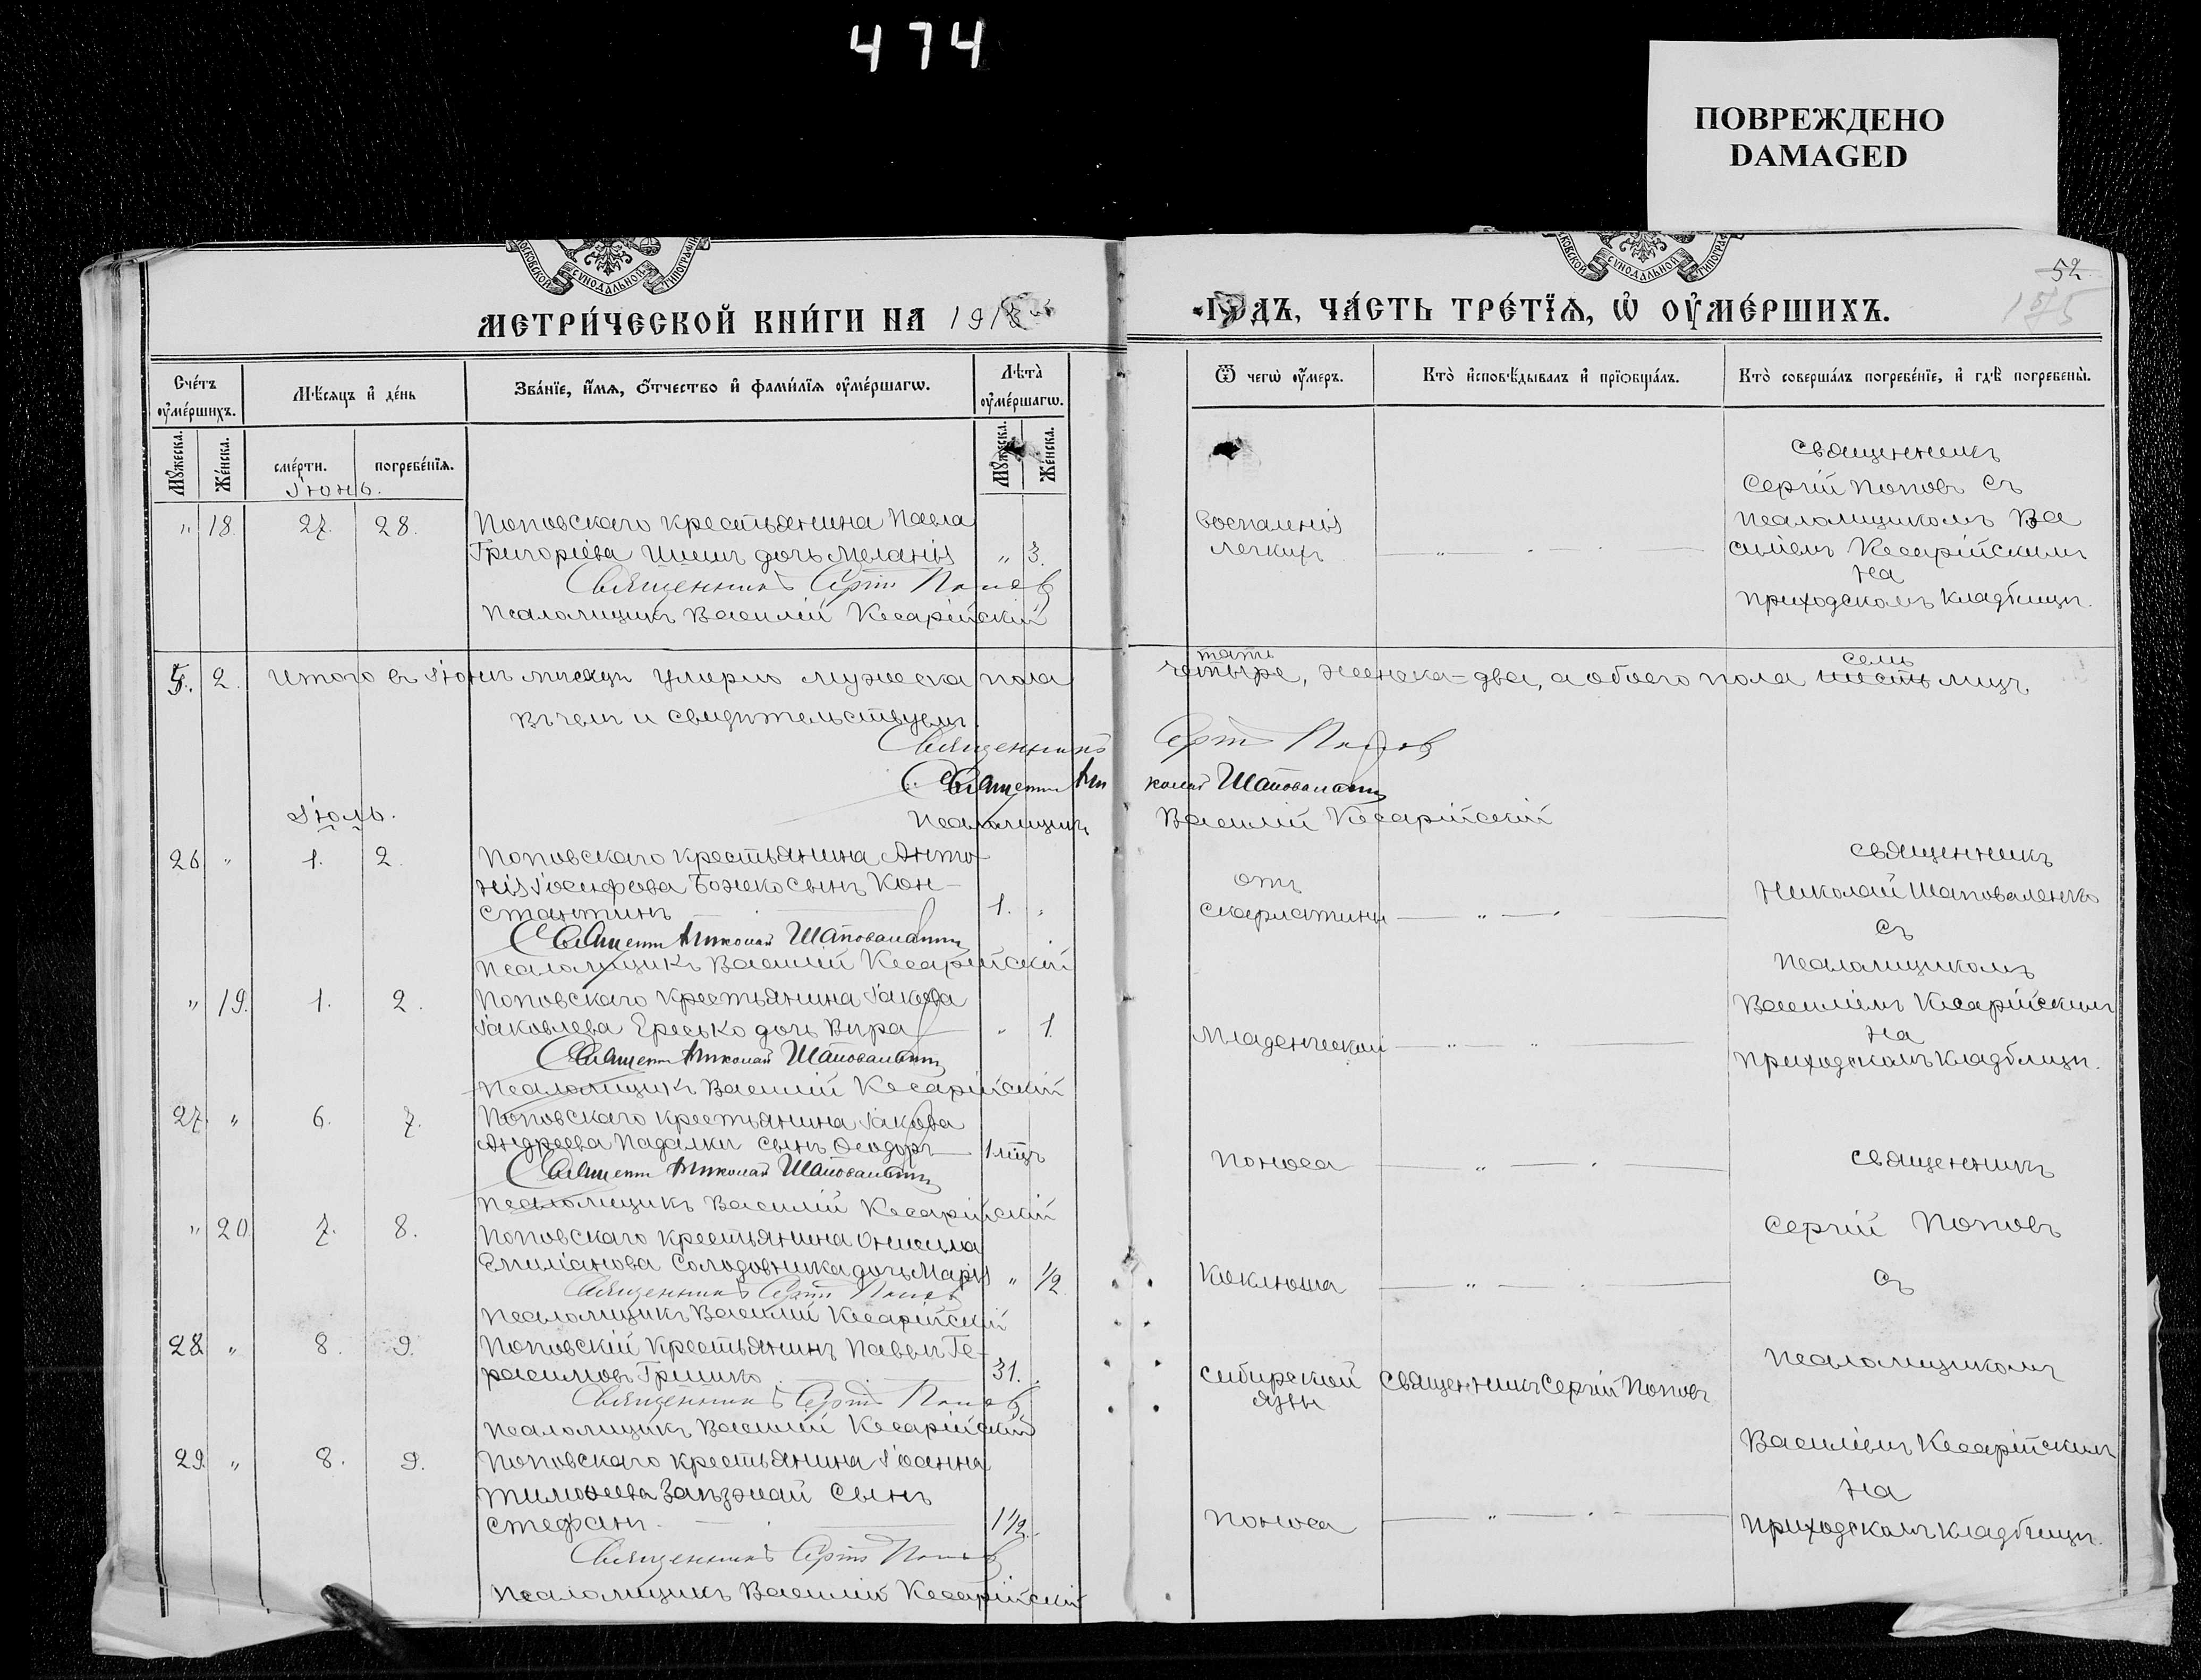 474
ПОВРЕЖДЕНО
DAMAGED
МОСКОВСКОЙ СѴНОДАЛЬНОЙ ТИПОГРАФІИ
КОВСКОЙ СѴНОДАЛЬНОЙ ТИПОГРАФІ
52
МЕТРИ́ЧЕСКОЙ КНИ́ГИ НА 191
ГОДЪ, ЧА́СТЬ ТРЕ́ТЇѦ, Ѡ҆ ОУ҆МЕ́РШИХЪ.
Сче́тъ оу҆ме́ршихъ.
Мѣ́сяцъ и҆ де́нь
Зва́нїе, и҆́мѧ, ѻ҆́тчество и҆ фами́лїѧ оу҆ме́ршагѡ.
Лѣта̀ оу҆ме́ршагѡ.
Ѿ чегѡ̀ оу҆́меръ.
Кто̀ и҆сповѣ́дывалъ и҆ прїѡбща́лъ.
Кто̀ соверша́лъ погребе́нїе, и҆ гдѣ̀ погребены̀.
Мꙋ́жеска.
Же́нска.
сме́рти.
погребе́нїѧ.
Мꙋ́жеска.
Же́нска.
Іюнь.
" 18. 27. 28. Поповскаго крестьянина Павла
Григоріева дочь Меланія " 3.
Священникъ Сергій Поповъ
Псаломщикъ Василій Кесарійскій
воспаленія
легкихъ
Священникъ
Сергій Поповъ съ
псаломщикомъ Ва
силіемъ Кесарійскимъ
на
приходскомъ кладбищѣ.
5. 2. Итого въ Іюнѣ мѣсяцѣ умерло мужеска пола
пять
четыре, женска - два, а обоего пола шесть лицъ.
семь
въ чемъ и свидѣтельствуемъ.
Священникъ Сергій Поповъ
Священникъ Николай Шаповаленко
Псаломщикъ Василій Кесарійскій
Іюль.
26 " 1. 2. Поповскаго крестьянина Анто-
нія Іосифова Божко сынъ Кон-
стантинъ 1. "
Священникъ Николай Шаповаленко
Псаломщикъ Василій Кесарійскій
отъ
скарлатины
Священникъ
Николай Шаповаленко
съ
псаломщикомъ
Василіемъ Кесарійскимъ
на
приходскомъ кладбищѣ.
" 19. 1. 2. Поповскаго крестьянина Іакова
Іаковлева Ересько дочь Вѣра " 1.
Священникъ Николай Шаповаленко
Псаломщикъ Василій Кесарійскій
младенческой
27. " 6. 7. Поповскаго крестьянина Іакова
Андреева Падалки сынъ Ѳеодоръ 1 мѣц
Священникъ Николай Шаповаленко
Псаломщикъ Василій Кесарійскій
поноса
Священникъ
Сергій Поповъ
съ
псаломщикомъ
Василіемъ Кесарійскимъ
на
приходскомъ кладбищѣ.
" 20 7. 8. Поповскаго крестьянина Онисима
Емиліанова Солодовника дочь Марія " 1/2
Священникъ Сергій Поповъ
Псаломщикъ Василій Кесарійскій
коклюша
28. " 8. 9. Поповскій крестьянинъ Павелъ Ге-
расимовъ Гришко 31.
Священникъ Сергій Поповъ
Псаломщикъ Василій Кесарійскій
сибирской
язвы
Священникъ Сергій Поповъ
29. " 8. 9. Поповскаго крестьянина Іоанна
Тимоѳеева сынъ
Стефанъ 1 1/2.
Священникъ Сергій Поповъ
Псаломщикъ Василій Кесарійскій
поноса